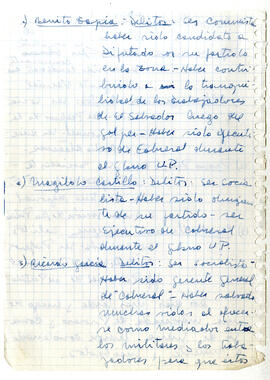 1) Benito Tapia: Delitos: Ser comunista
haber sido candidato a
Diputado de su partido
en la zona - Haber contri-
buido a la tranqui-
lidad de los trabajadores
de El Salvador luego del
golpe - Haber sido ejecuti-
vo de Cobresal durante
el Gbno U.P.
2) Magilolo Castillo: Delitos: Ser socia-
lista - Haber sido dirigen-
te de su partido - ser
Ejecutivo de Cobresal
durante el Gbno U.P.
3) Ricardo García Delitos: Ser socialista -
Haber sido gerente general
de Cobresal - Haber salvado
muchas vidas al ofrecer-
se como mediador entre
los militares y los traba-
jadores para que estos